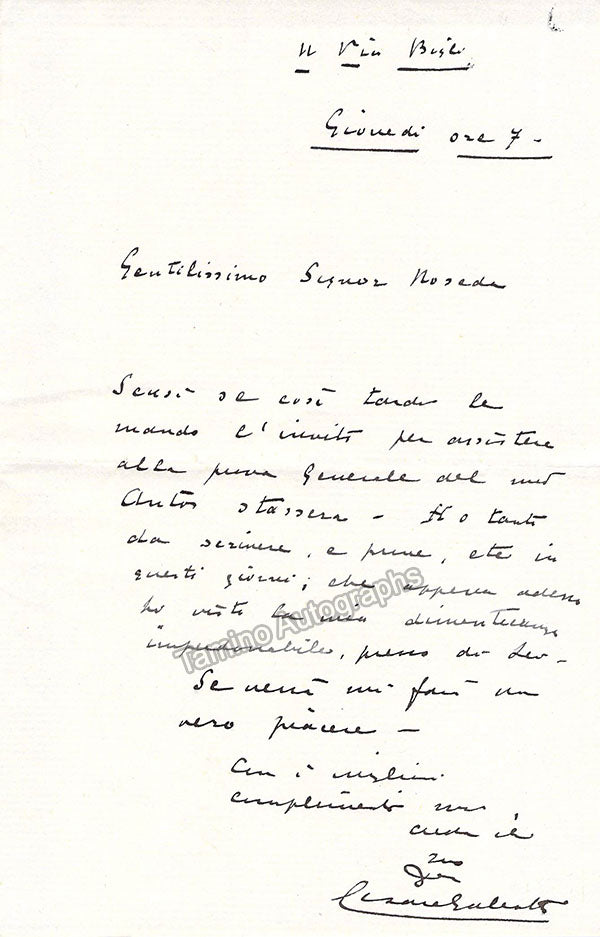 11 Via Bigli
Giovedì ore 7 -
Gentilissimo Signor Noseda
Scusi se così tardi le
mando l'invito per assistere
alla prova Generale del mio
Antos stassera - Ho tanto
da scrivere, e prove, etc in
questi giorni; che appena adesso
ho visto la mia dimenticanza
imperdonabile, presso di Lei -
Se verrà mi farà un
vero piacere -
Con i migliori
complimenti mi
creda il
suo
Cesare Galeotti
Tamino Autographs